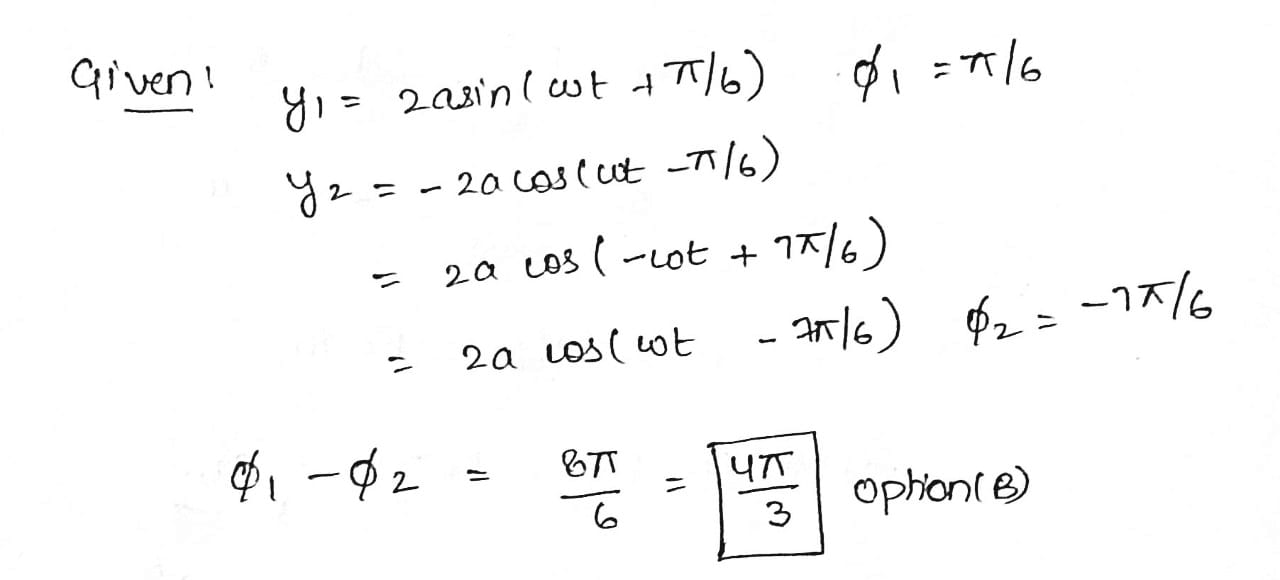 Given:
y1 = 2asin(ωt + π/6) ϕ1 = π/6
y2 = -2a cos(ωt - π/6)
= 2a cos(-ωt + 7π/6)
= 2a cos(ωt - 7π/6) ϕ2 = -7π/6
ϕ1 - ϕ2 = 8π/6 = 4π/3 option(B)